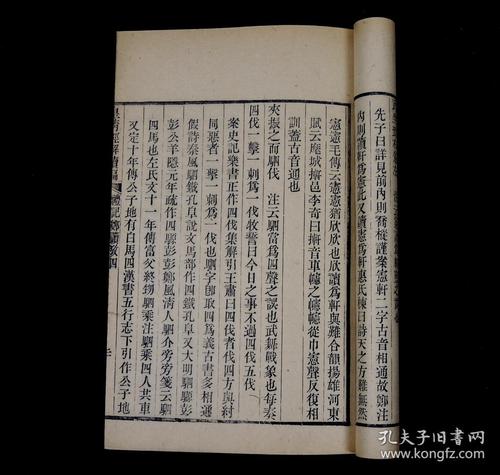 先子曰詳見前內則喬樅謹案憲軒二字古音相通故鄭注
內則讀軒為憲此又讀憲為軒惠氏棟曰詩天之方難無然
憲憲毛傳云憲憲猶欣欣也欣讀爲軒與難合韻揚雄河東
賦云麾城摲邑李奇曰摲音車幰之幰幰從巾憲聲反復相
訓蓋古音通也
夾振之而駟伐　注云駟當爲四聲之誤也武舞戰象也每奏
四伐一擊一刺爲一伐牧誓曰今日之事不過四伐五伐
案史記樂書正作四伐集解引王肅曰四伐者伐四方與紂
同惡者一擊一刺爲一伐也駟字卽取四爲義古書多相通
假詩秦風駟鐵孔阜說文馬部作四鐵孔阜又大明駟騵彭
彭公羊隱元年疏作四騵彭彭鄭風清人駟介旁旁箋云駟
四馬也左氏文十一年傳富父終甥駟乘注駟乘四人共車
又定十年傳公子地有白馬四漢書五行志下引作公子地
皇清經解續編
禮記鄭讀攷四
孔夫子旧书网
kongfz.com